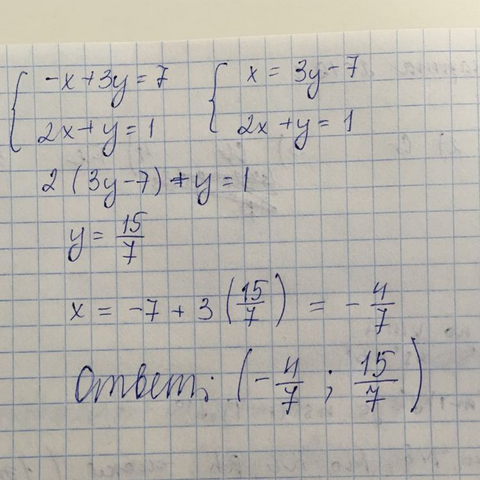 { -x+3y=7 { x = 3y-7
2x+y=1 2x+y=1
2(3y-7)+y=1
y = 15/7
x = -7 + 3(15/7) = -4/7
Ответ: (-4/7 ; 15/7)